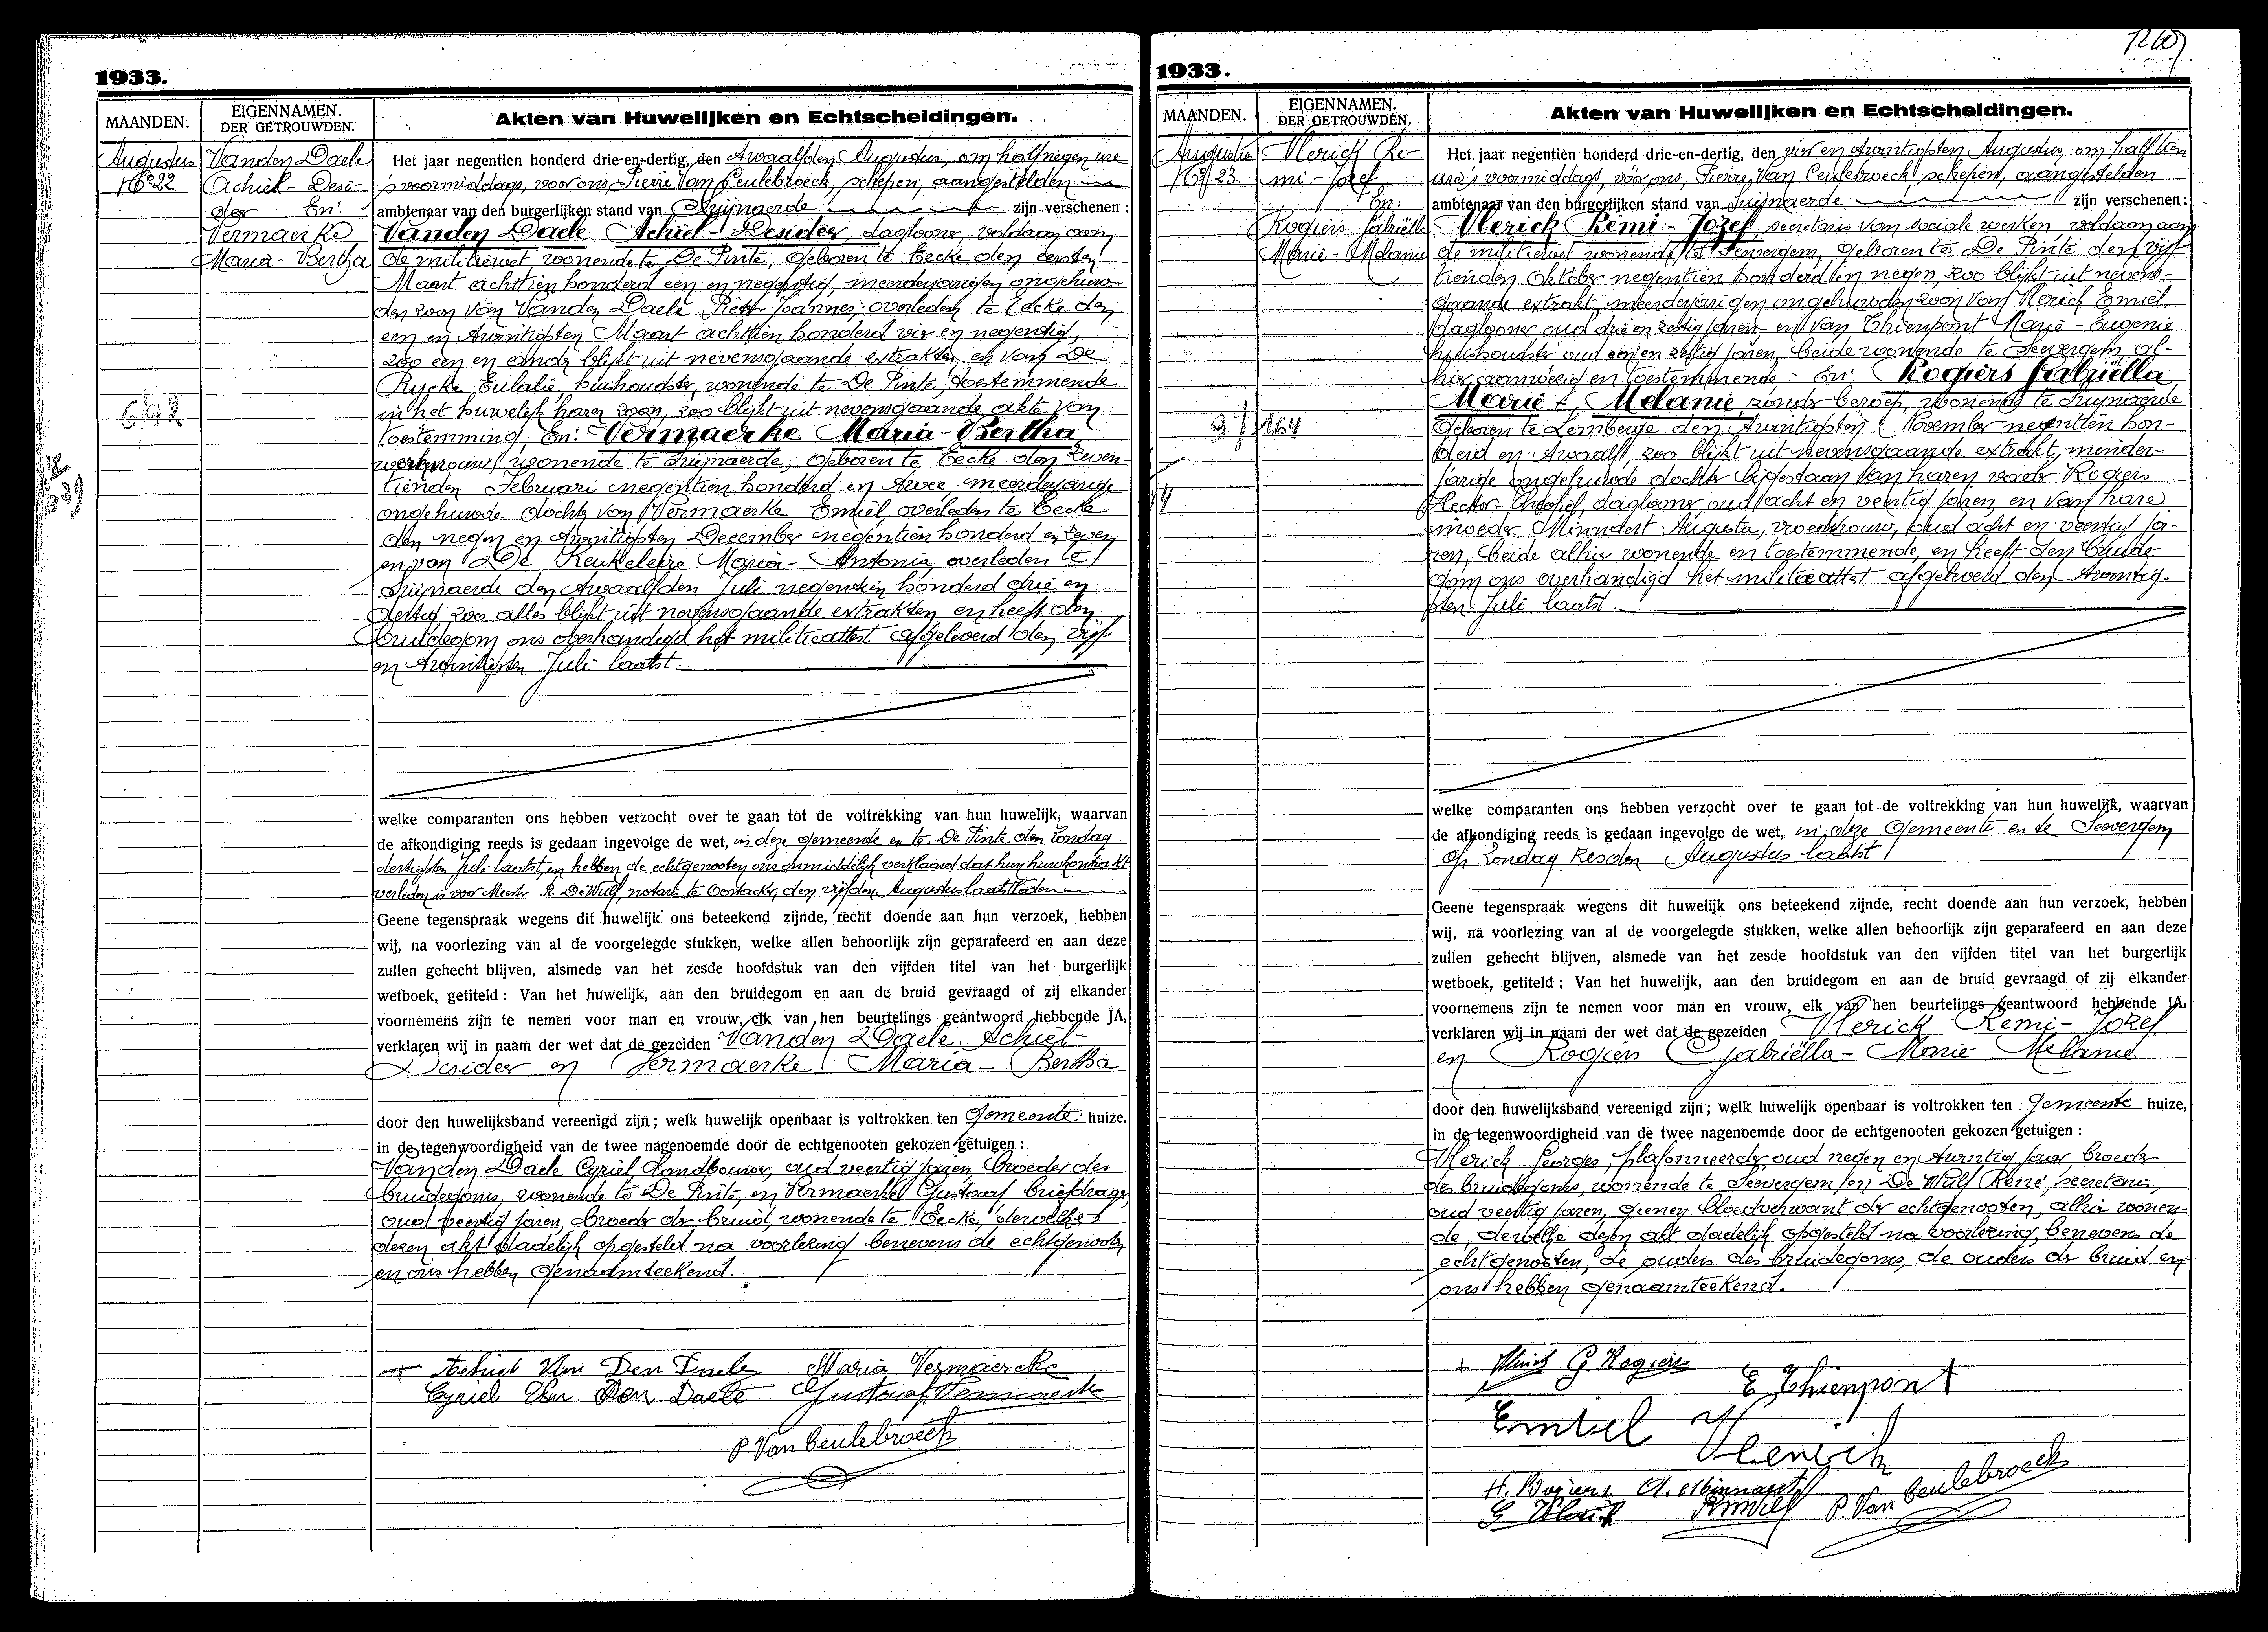 1933.
MAANDEN.
EIGENNAMEN.
DER GETROUWDEN.
Akten van Huwelijken en Echtscheidingen.
Augustus
No 22
Vanden Daele
Achiel - Desi-
der En:
Vermaerke
Maria - Bertha
642
Het jaar negentien honderd drie-en-dertig, den twaalfden Augustus, om half negen ure
's voormiddags, voor ons, Pierre Van Ceulebroeck, schepen, aangestelden
ambtenaar van den burgerlijken stand van Zwijnaerde zijn verschenen:
Vanden Daele Achiel - Desider, daglooner, voldaan aan
de militiewet, wonende te De Pinte, geboren te Eecke den eersten
Maart achttien honderd een en negentig, meerderjarigen ongehuw-
den zoon van Vanden Daele Pieter Joannes, overleden te Eecke den
een en twintigsten Maart achttien honderd vier en negentig,
zoo een en ander blijkt uit nevensgaande extrakten en van De
Rycke Eulalie, huishoudster, wonende te De Pinte, toestemmende
in het huwelijk haren zoon, zoo blijkt uit nevensgaande akte van
toestemming, En: Vermaerke Maria - Bertha
werkvrouw, wonende te Zwijnaerde, geboren te Eecke den zeven-
tienden Februari negentien honderd en twee, meerderjarige
ongehuwde dochter van Vermaerke Emiel, overleden te Eecke
den negen en twintigsten December negentien honderd en zeven
en van De Keukeleire Maria - Antonia, overleden te
Zwijnaerde den twaalfden Juli negentien honderd drie en
dertig zoo alles blijkt uit nevensgaande extrakten en heeft den
bruidegom ons overhandigd het militieattest afgeleverd den vijf
en twintigsten Juli laatst.
welke comparanten ons hebben verzocht over te gaan tot de voltrekking van hun huwelijk, waarvan
de afkondiging reeds is gedaan ingevolge de wet, in deze gemeente en te De Pinte den Zondag
dertigsten Juli laatst, en hebben de echtgenooten ons onmiddelijk verklaard dat hun huwkontrakt
verleden is voor Meester R. De Wulf, notaris te Oostacker, den vijfden Augustus laatstleden
Geene tegenspraak wegens dit huwelijk ons beteekend zijnde, recht doende aan hun verzoek, hebben
wij, na voorlezing van al de voorgelegde stukken, welke allen behoorlijk zijn geparafeerd en aan deze
zullen gehecht blijven, alsmede van het zesde hoofdstuk van den vijfden titel van het burgerlijk
wetboek, getiteld: Van het huwelijk, aan den bruidegom en aan de bruid gevraagd of zij elkander
voornemens zijn te nemen voor man en vrouw, elk van hen beurtelings geantwoord hebbende JA,
verklaren wij in naam der wet dat de gezeiden Vanden Daele Achiel-
Desider en Vermaerke Maria - Bertha
door den huwelijksband vereenigd zijn; welk huwelijk openbaar is voltrokken ten Gemeente huize,
in de tegenwoordigheid van de twee nagenoemde door de echtgenooten gekozen getuigen:
Vanden Daele Cyriel landbouwer, oud veertig jaren, broeder des
bruidegoms, wonende te De Pinte, en Vermaerke Gustaaf briefdrager,
oud veertig jaren, broeder der bruid, wonende te Eecke, dewelke
dezen akt dadelijk opgesteld na voorlezing benevens de echtgenooten
en ons hebben genaamteekend.
Achiel Van Den Daele Maria Vermaercke
Cyriel Van Den Daele Gustaaf Vermaerke
P. Van Ceulebroeck
1933.
MAANDEN.
EIGENNAMEN.
DER GETROUWDEN.
Akten van Huwelijken en Echtscheidingen.
Augustus
No 23.
Vlerick Re-
mi - Jozef
En:
Rogiers Gabriëlla
Marie - Melanie
164
Het jaar negentien honderd drie-en-dertig, den vier en twintigsten Augustus, om half tien
ure 's voormiddags, voor ons, Pierre Van Ceulebroeck schepen, aangestelden
ambtenaar van den burgerlijken stand van Zwijnaerde zijn verschenen:
Vlerick Remi - Jozef, secretaris van sociale werken voldaan aan
de militiewet wonende te Seevergem, geboren te De Pinte den vijf-
tienden Oktober negentien honderd en negen, zoo blijkt uit nevens-
gaande extrakt, meerderjarigen ongehuwden zoon van Vlerick Emiel,
daglooner oud drie en zestig jaren en van Thienpont Marie - Eugenie
huishoudster oud een en zestig jaren, beide wonende te Seevergem al-
hier aanwezig en toestemmende - En: Rogiers Gabriëlla
Marie - Melanie zonder beroep, wonende te Zwijnaerde
geboren te Lemberge den twintigsten November negentien hon-
derd en twaalf, zoo blijkt uit nevensgaande extrakt, minder-
jarige ongehuwde dochter bijgestaan van haren vader Rogiers
Hector - Theofiel, daglooner oud acht en veertig jaren, en van hare
moeder Minndert Augusta, vroedvrouw, oud acht en veertig ja-
ren, beide alhier wonende en toestemmende, en heeft den bruide-
gom ons overhandigd het militieattest afgeleverd den twintig-
sten Juli laatst.
welke comparanten ons hebben verzocht over te gaan tot de voltrekking van hun huwelijk, waarvan
de afkondiging reeds is gedaan ingevolge de wet, in deze Gemeente en te Seevergem
op Zondag zesden Augustus laatst
Geene tegenspraak wegens dit huwelijk ons beteekend zijnde, recht doende aan hun verzoek, hebben
wij, na voorlezing van al de voorgelegde stukken, welke allen behoorlijk zijn geparafeerd en aan deze
zullen gehecht blijven, alsmede van het zesde hoofdstuk van den vijfden titel van het burgerlijk
wetboek, getiteld: Van het huwelijk, aan den bruidegom en aan de bruid gevraagd of zij elkander
voornemens zijn te nemen voor man en vrouw, elk van hen beurtelings geantwoord hebbende JA,
verklaren wij in naam der wet dat de gezeiden Vlerick Remi - Jozef
en Rogiers Gabriëlla - Marie - Melanie
door den huwelijksband vereenigd zijn; welk huwelijk openbaar is voltrokken ten Gemeente huize,
in de tegenwoordigheid van de twee nagenoemde door de echtgenooten gekozen getuigen:
Vlerick Georges, plafonneerder, oud negen en twintig jaar broeder
des bruidegoms, wonende te Seevergem en De Wulf René, secretaris,
oud veertig jaren, geenen bloedverwant der echtgenooten, alhier wonen-
de, dewelke dezen akt dadelijk opgesteld na voorlezing, benevens de
echtgenooten, de ouders des bruidegoms, de ouders der bruid en
ons hebben genaamteekend.
Vlerick G. Rogiers
E Thienpont
Emiel Vlerick
H. Rogiers A. Minnaert
G Vlerick P. Van Ceulebroeck